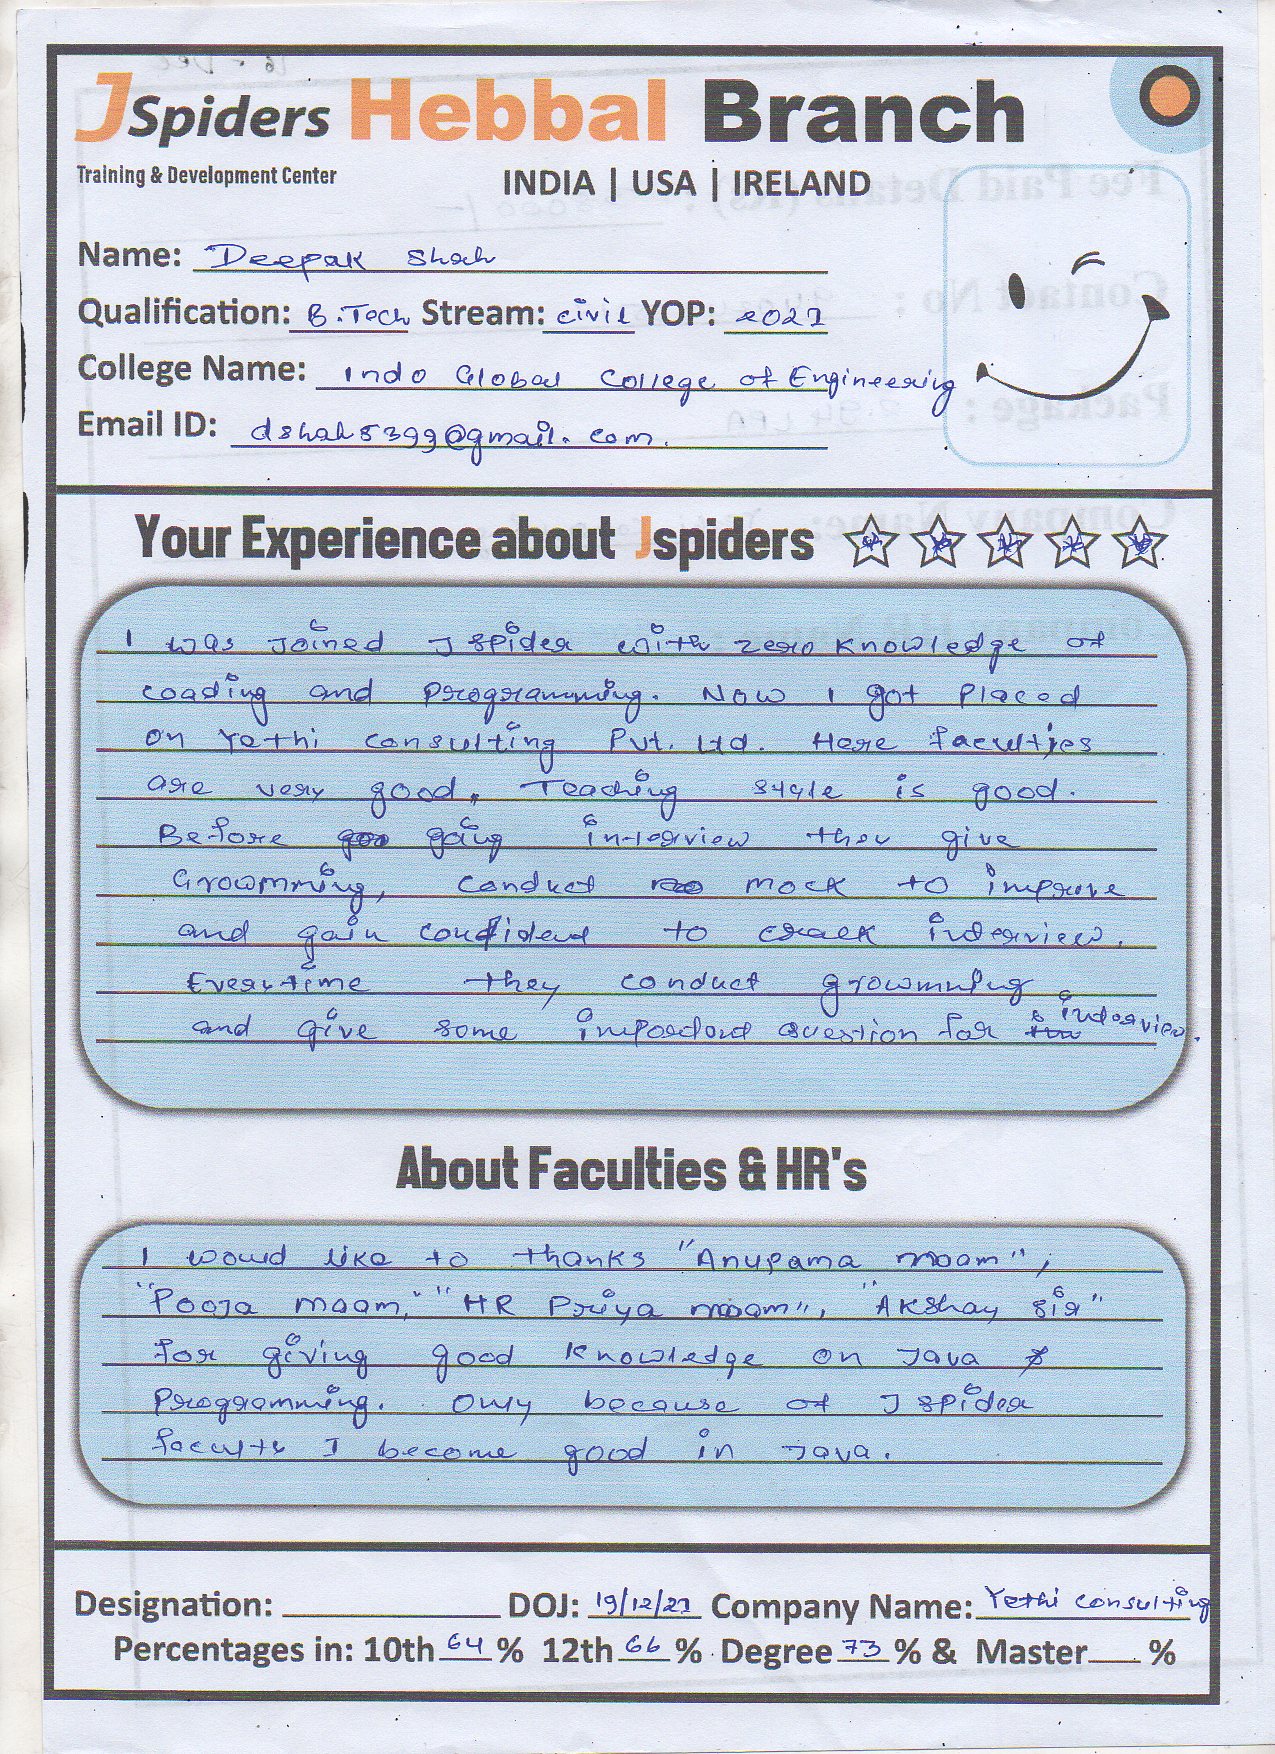 JSpiders Hebbal Branch
Training & Development Center
INDIA | USA | IRELAND
Name: Deepak Shah
Qualification: B.Tech Stream: civil YOP: 2021
College Name: Indo Global College of Engineering
Email ID: dshah5399@gmail.com.
Your Experience about Jspiders
I was Joined J spider with zero knowledge of
coading and programming. Now I got Placed
on Yethi consulting Pvt. Ltd. Here faculties
are very good. Teaching style is good.
Before going interview they give
Growmming, conduct mock to improve
and gain confident to crack interview.
Everytime they conduct growmning
and give some important question for interview.
About Faculties & HR's
I would like to thanks "Anupama maam",
"Pooja maam," "HR Priya maam", "Akshay sir"
for giving good knowledge on Java
Programming. only because of J spider
faculty I become good in Java.
Designation: DOJ: 19/12/21 Company Name: Yethi consulting
Percentages in: 10th 64 % 12th 66 % Degree 73 % & Master %